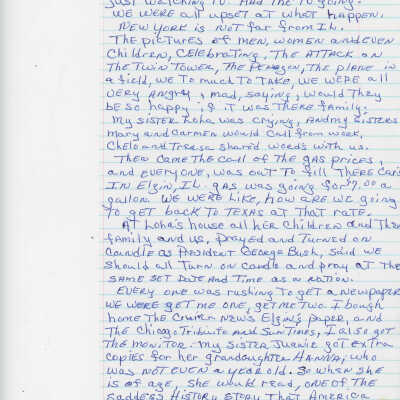 Just watching TV. Had the TV going.
We were all upset at what happen.
New York is not far from IL.
The pictures of men, women and even
Children, celebrating. The attack on
the Twin Tower, The Pentagon, The plane in
a field, we to much to take, we were all
very angry & mad, saying, would they
be so happy if it was there family.
My sister Loha was crying, and my sisters
Mary and Carmen would call from work,
Chelo and Tresa shared words with us.
Then came the call of the gas prices,
and everyone, was out to fill there cars
In Elgin, IL. gas was going for $7.00 a
gallon. We were like, how are we going
to get back to Texas at that rate.
At Loha's house all her children and their
family and us, prayed and turned on
candle as President George Bush, said we
should all turn on candle and pray at the
same set date and time as a nation.
Every one was rushing to get a newspaper
we were get me one, get me two. I bough
home the Courier News Elgin's paper, and
the Chicago Tribute and Sun Times, I also got
the Monitor. My sister Juanie got extra
copies for her grandaughter Hanna, who
was not even a year old. So when she
is of age, she would read, one of the
saddess history story that America